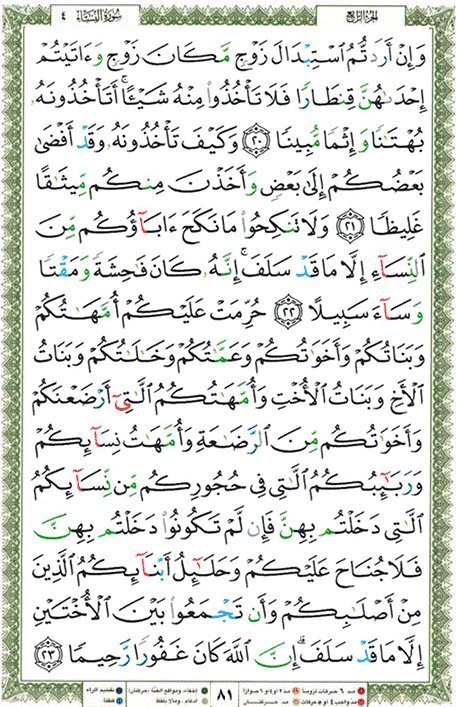 الجزء الرابع
سورة النساء
٤
وَإِنْ أَرَدتُّمُ ٱسْتِبْدَالَ زَوْجٍ مَّكَانَ زَوْجٍ وَءَاتَيْتُمْ
إِحْدَىٰهُنَّ قِنطَارًا فَلَا تَأْخُذُوا۟ مِنْهُ شَيْـًٔا ۚ أَتَأْخُذُونَهُۥ
بُهْتَٰنًا وَإِثْمًا مُّبِينًا ۝٢٠ وَكَيْفَ تَأْخُذُونَهُۥ وَقَدْ أَفْضَىٰ
بَعْضُكُمْ إِلَىٰ بَعْضٍ وَأَخَذْنَ مِنكُم مِّيثَٰقًا
غَلِيظًا ۝٢١ وَلَا تَنكِحُوا۟ مَا نَكَحَ ءَابَآؤُكُم مِّنَ
ٱلنِّسَآءِ إِلَّا مَا قَدْ سَلَفَ ۚ إِنَّهُۥ كَانَ فَٰحِشَةً وَمَقْتًا
وَسَآءَ سَبِيلًا ۝٢٢ حُرِّمَتْ عَلَيْكُمْ أُمَّهَٰتُكُمْ
وَبَنَاتُكُمْ وَأَخَوَٰتُكُمْ وَعَمَّٰتُكُمْ وَخَٰلَٰتُكُمْ وَبَنَاتُ
ٱلْأَخِ وَبَنَاتُ ٱلْأُخْتِ وَأُمَّهَٰتُكُمُ ٱلَّٰتِىٓ أَرْضَعْنَكُمْ
وَأَخَوَٰتُكُم مِّنَ ٱلرَّضَٰعَةِ وَأُمَّهَٰتُ نِسَآئِكُمْ
وَرَبَٰٓئِبُكُمُ ٱلَّٰتِى فِى حُجُورِكُم مِّن نِّسَآئِكُمُ
ٱلَّٰتِى دَخَلْتُم بِهِنَّ فَإِن لَّمْ تَكُونُوا۟ دَخَلْتُم بِهِنَّ
فَلَا جُنَاحَ عَلَيْكُمْ وَحَلَٰٓئِلُ أَبْنَآئِكُمُ ٱلَّذِينَ
مِنْ أَصْلَٰبِكُمْ وَأَن تَجْمَعُوا۟ بَيْنَ ٱلْأُخْتَيْنِ
إِلَّا مَا قَدْ سَلَفَ ۗ إِنَّ ٱللَّهَ كَانَ غَفُورًا رَّحِيمًا ۝٢٣
٨١